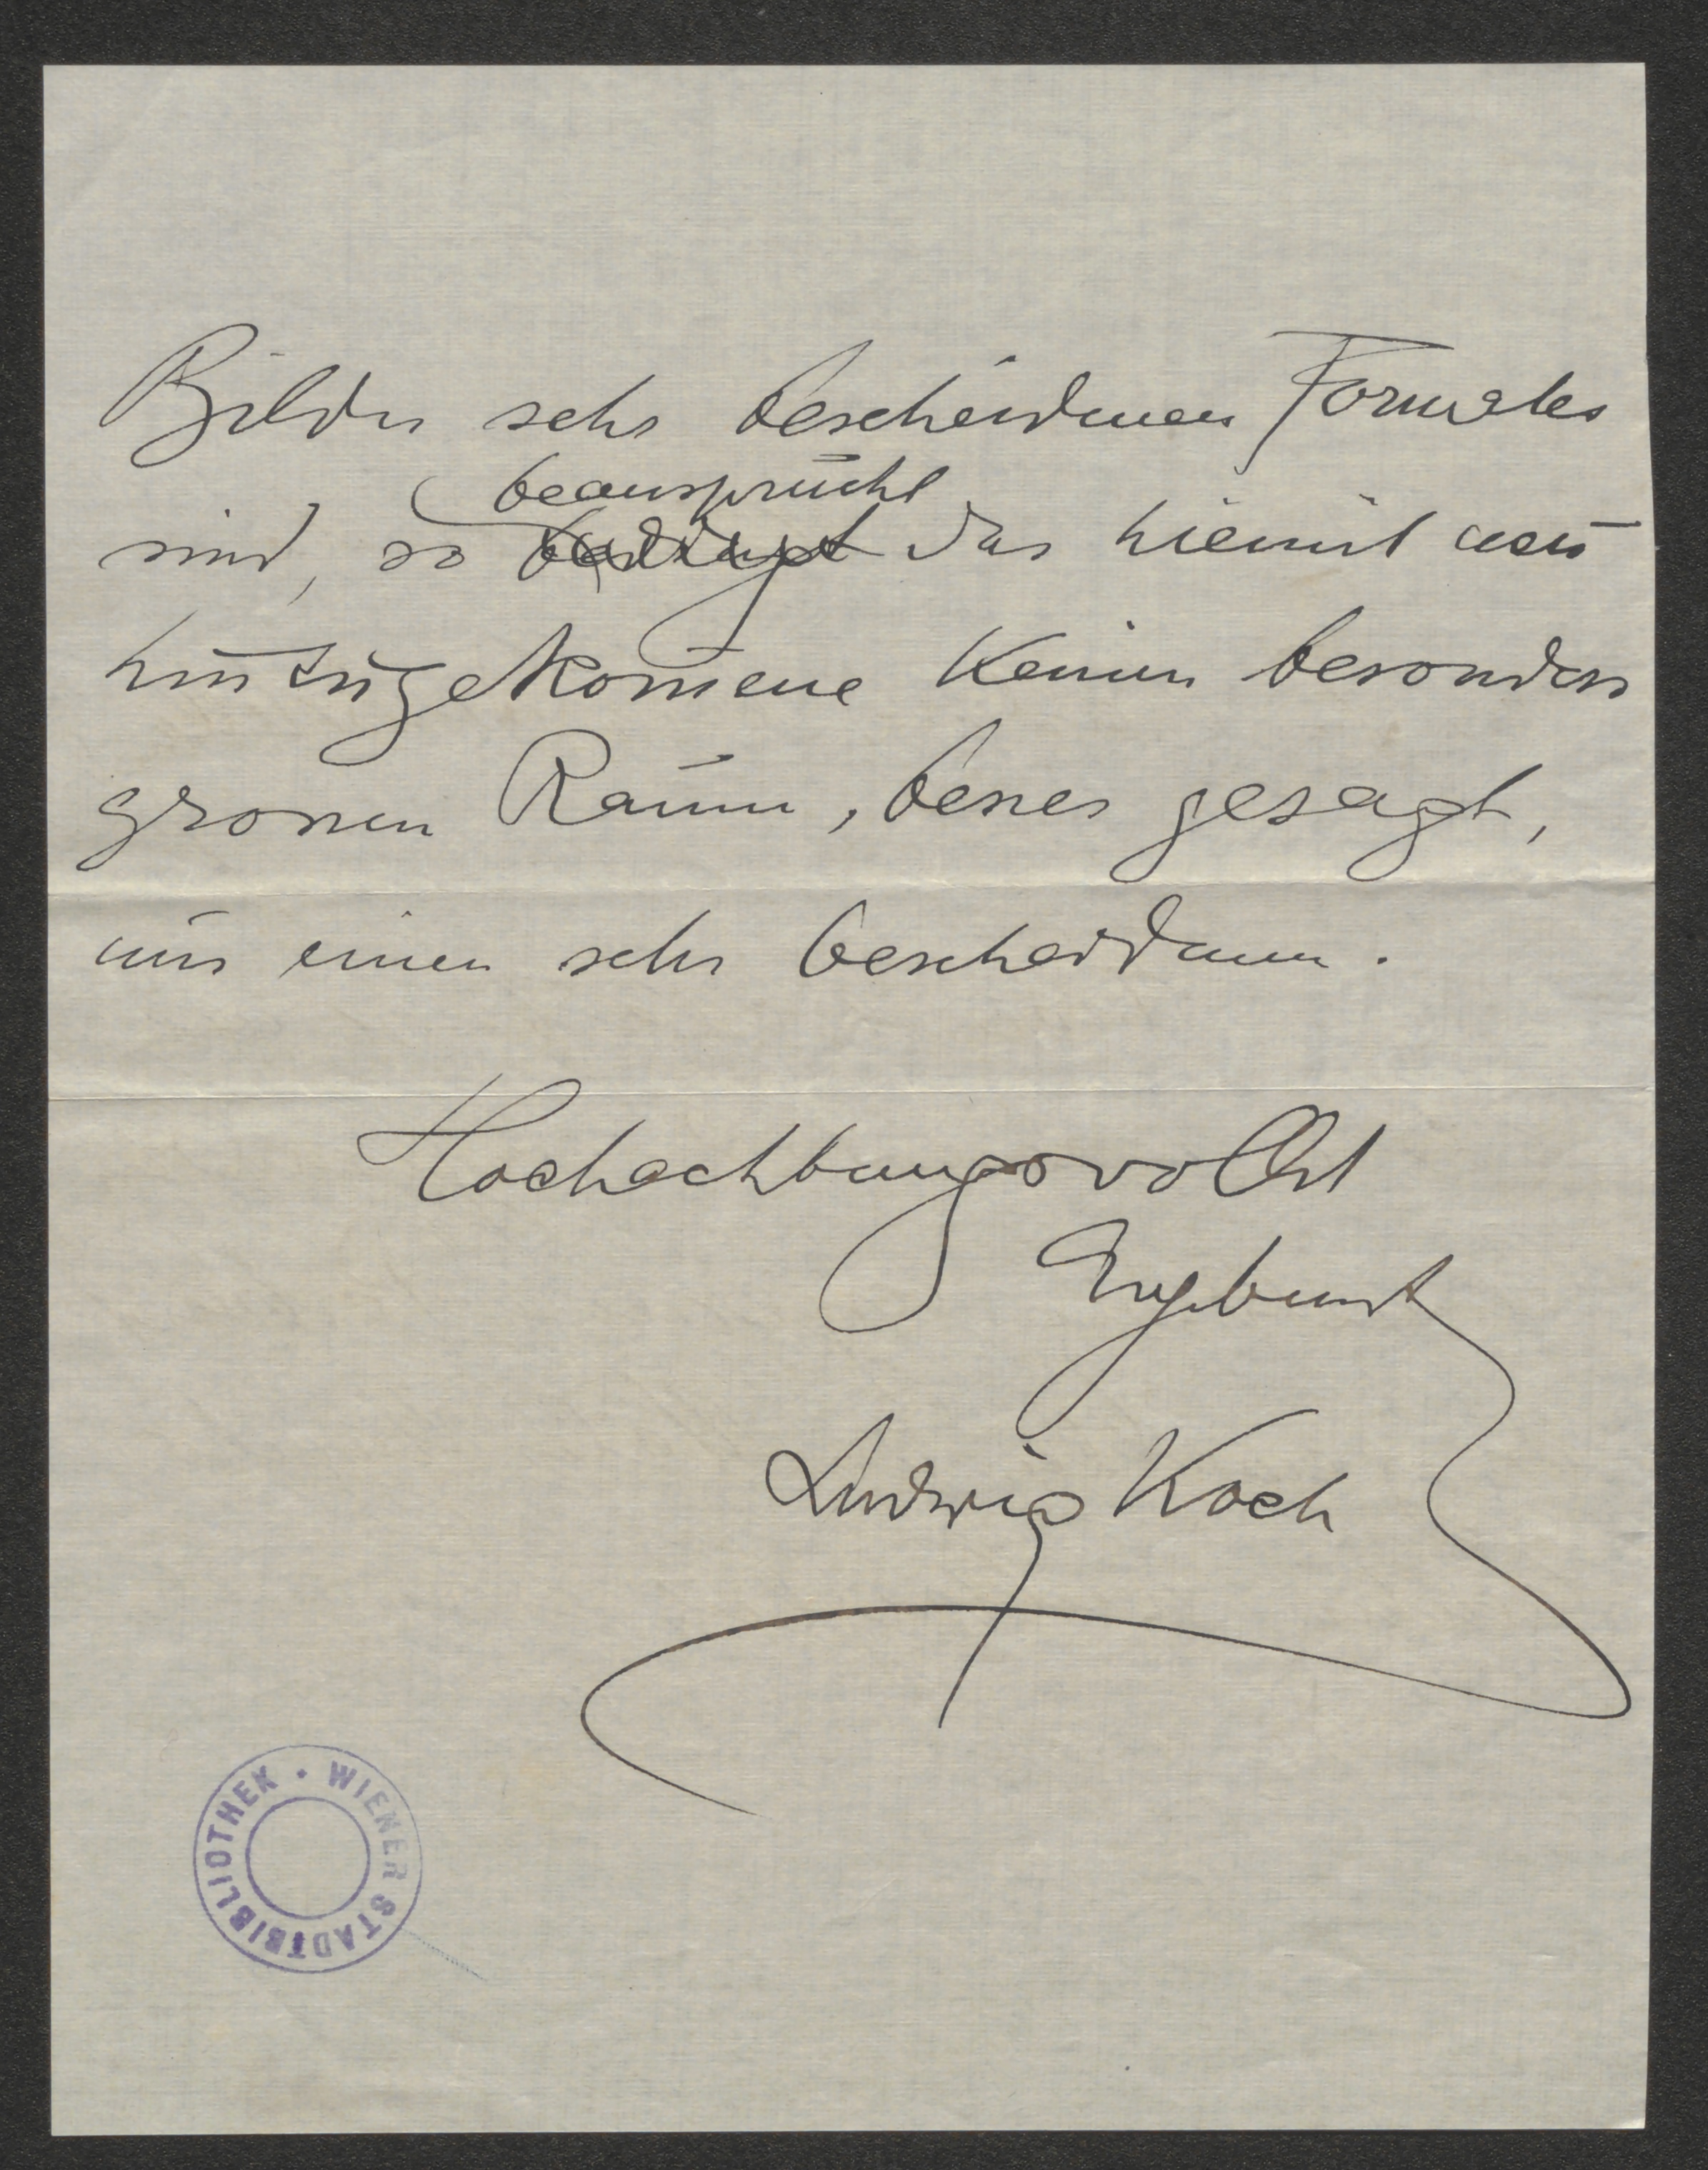 Bilder sehr bescheidenen Formates
beansprucht
sind, so bedingt das hiemit neu
hinzugekom̄ene keinen besonders
grossen Raum, besser gesagt,
nur einen sehr bescheidenen.
Hochachtungsvollst
Ergebenst
Ludwig Koch
WIENER STADTBIBLIOTHEK